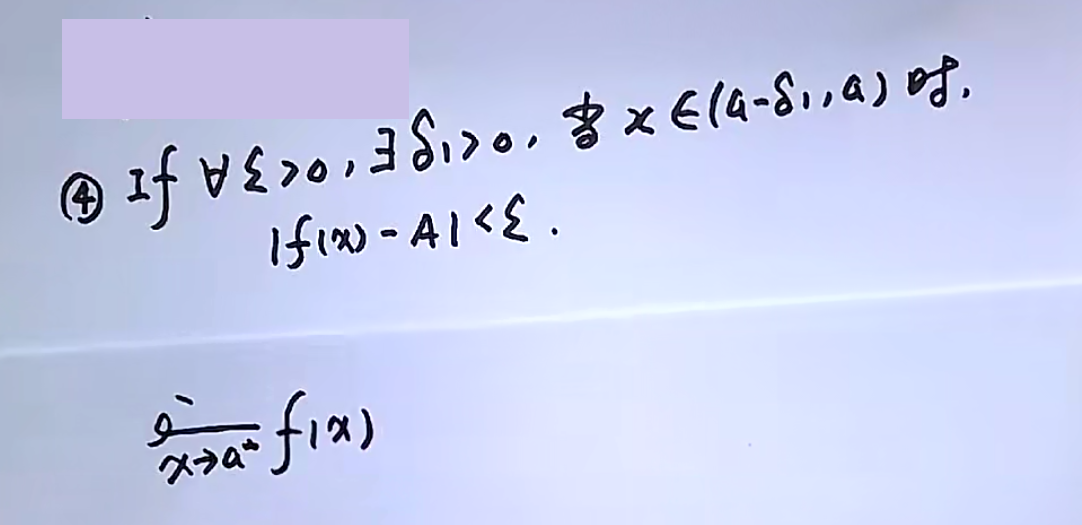 ④ If ∀ε>0, ∃δ₁>0, 当 x∈(a-δ₁,a) 时,
|f(x)-A|<ε.
x→a⁻ f(x)